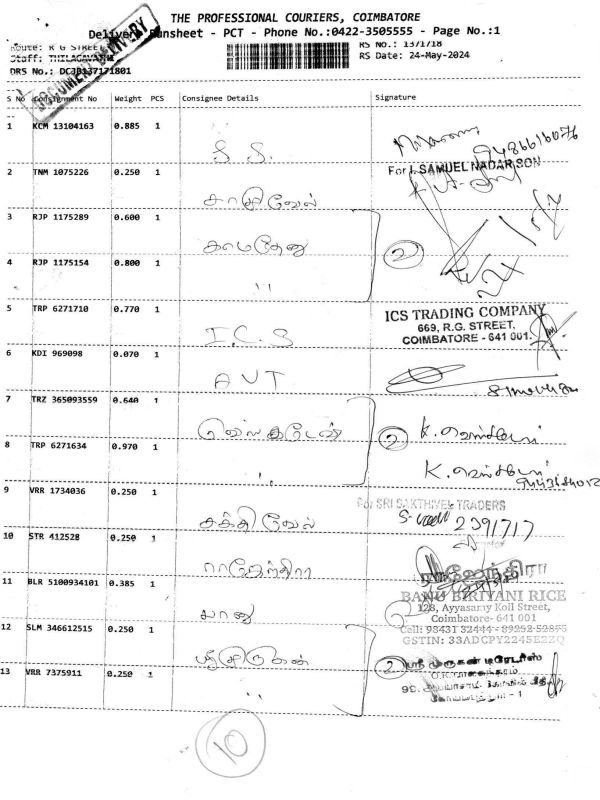 THE PROFESSIONAL COURIERS, COIMBATORE
Delivery Runsheet - PCT - Phone No.:0422-3505555 - Page No.:1
Route: R G STREET
RS No.: 1371718
Staff: THILAGAVATHI
RS Date: 24-May-2024
DRS No.: DCJB137171801
DOCUMENT DELIVERY
S No Consignment No Weight PCS Consignee Details Signature
1 KCM 13104163 0.885 1 S.S. 9486616076
For I. SAMUEL NADAR SON
2 TNM 1075226 0.250 1 சக்திவேல்
3 RJP 1175289 0.600 1 காமதேனு 2
4 RJP 1175154 0.800 1 ,,
5 TRP 6271710 0.770 1 I.C.S
ICS TRADING COMPANY
669, R.G. STREET,
COIMBATORE - 641 001.
6 KDI 969098 0.070 1 AVT
7 TRZ 365093559 0.640 1 2 K.
8 TRP 6271634 0.970 1 ,, K.
9 VRR 1734036 0.250 1 சக்திவேல்
For SRI SAKTHIVEL TRADERS
2391717
10 STR 412528 0.250 1 ராஜேந்திரா
ராஜேந்திரா
11 BLR 5100934101 0.385 1 பானு
BANU BIRIYANI RICE
128, Ayyasamy Koil Street,
Coimbatore- 641 001
Cell: 98431 32444 - 89252 52855
GSTIN: 33ADCPY2245E2ZQ
12 SLM 346612515 0.250 1 ஸ்ரீமுருகன் 2
ஸ்ரீ முருகன் டிரேடர்ஸ்
13 VRR 7375911 0.250 1 ,,
10